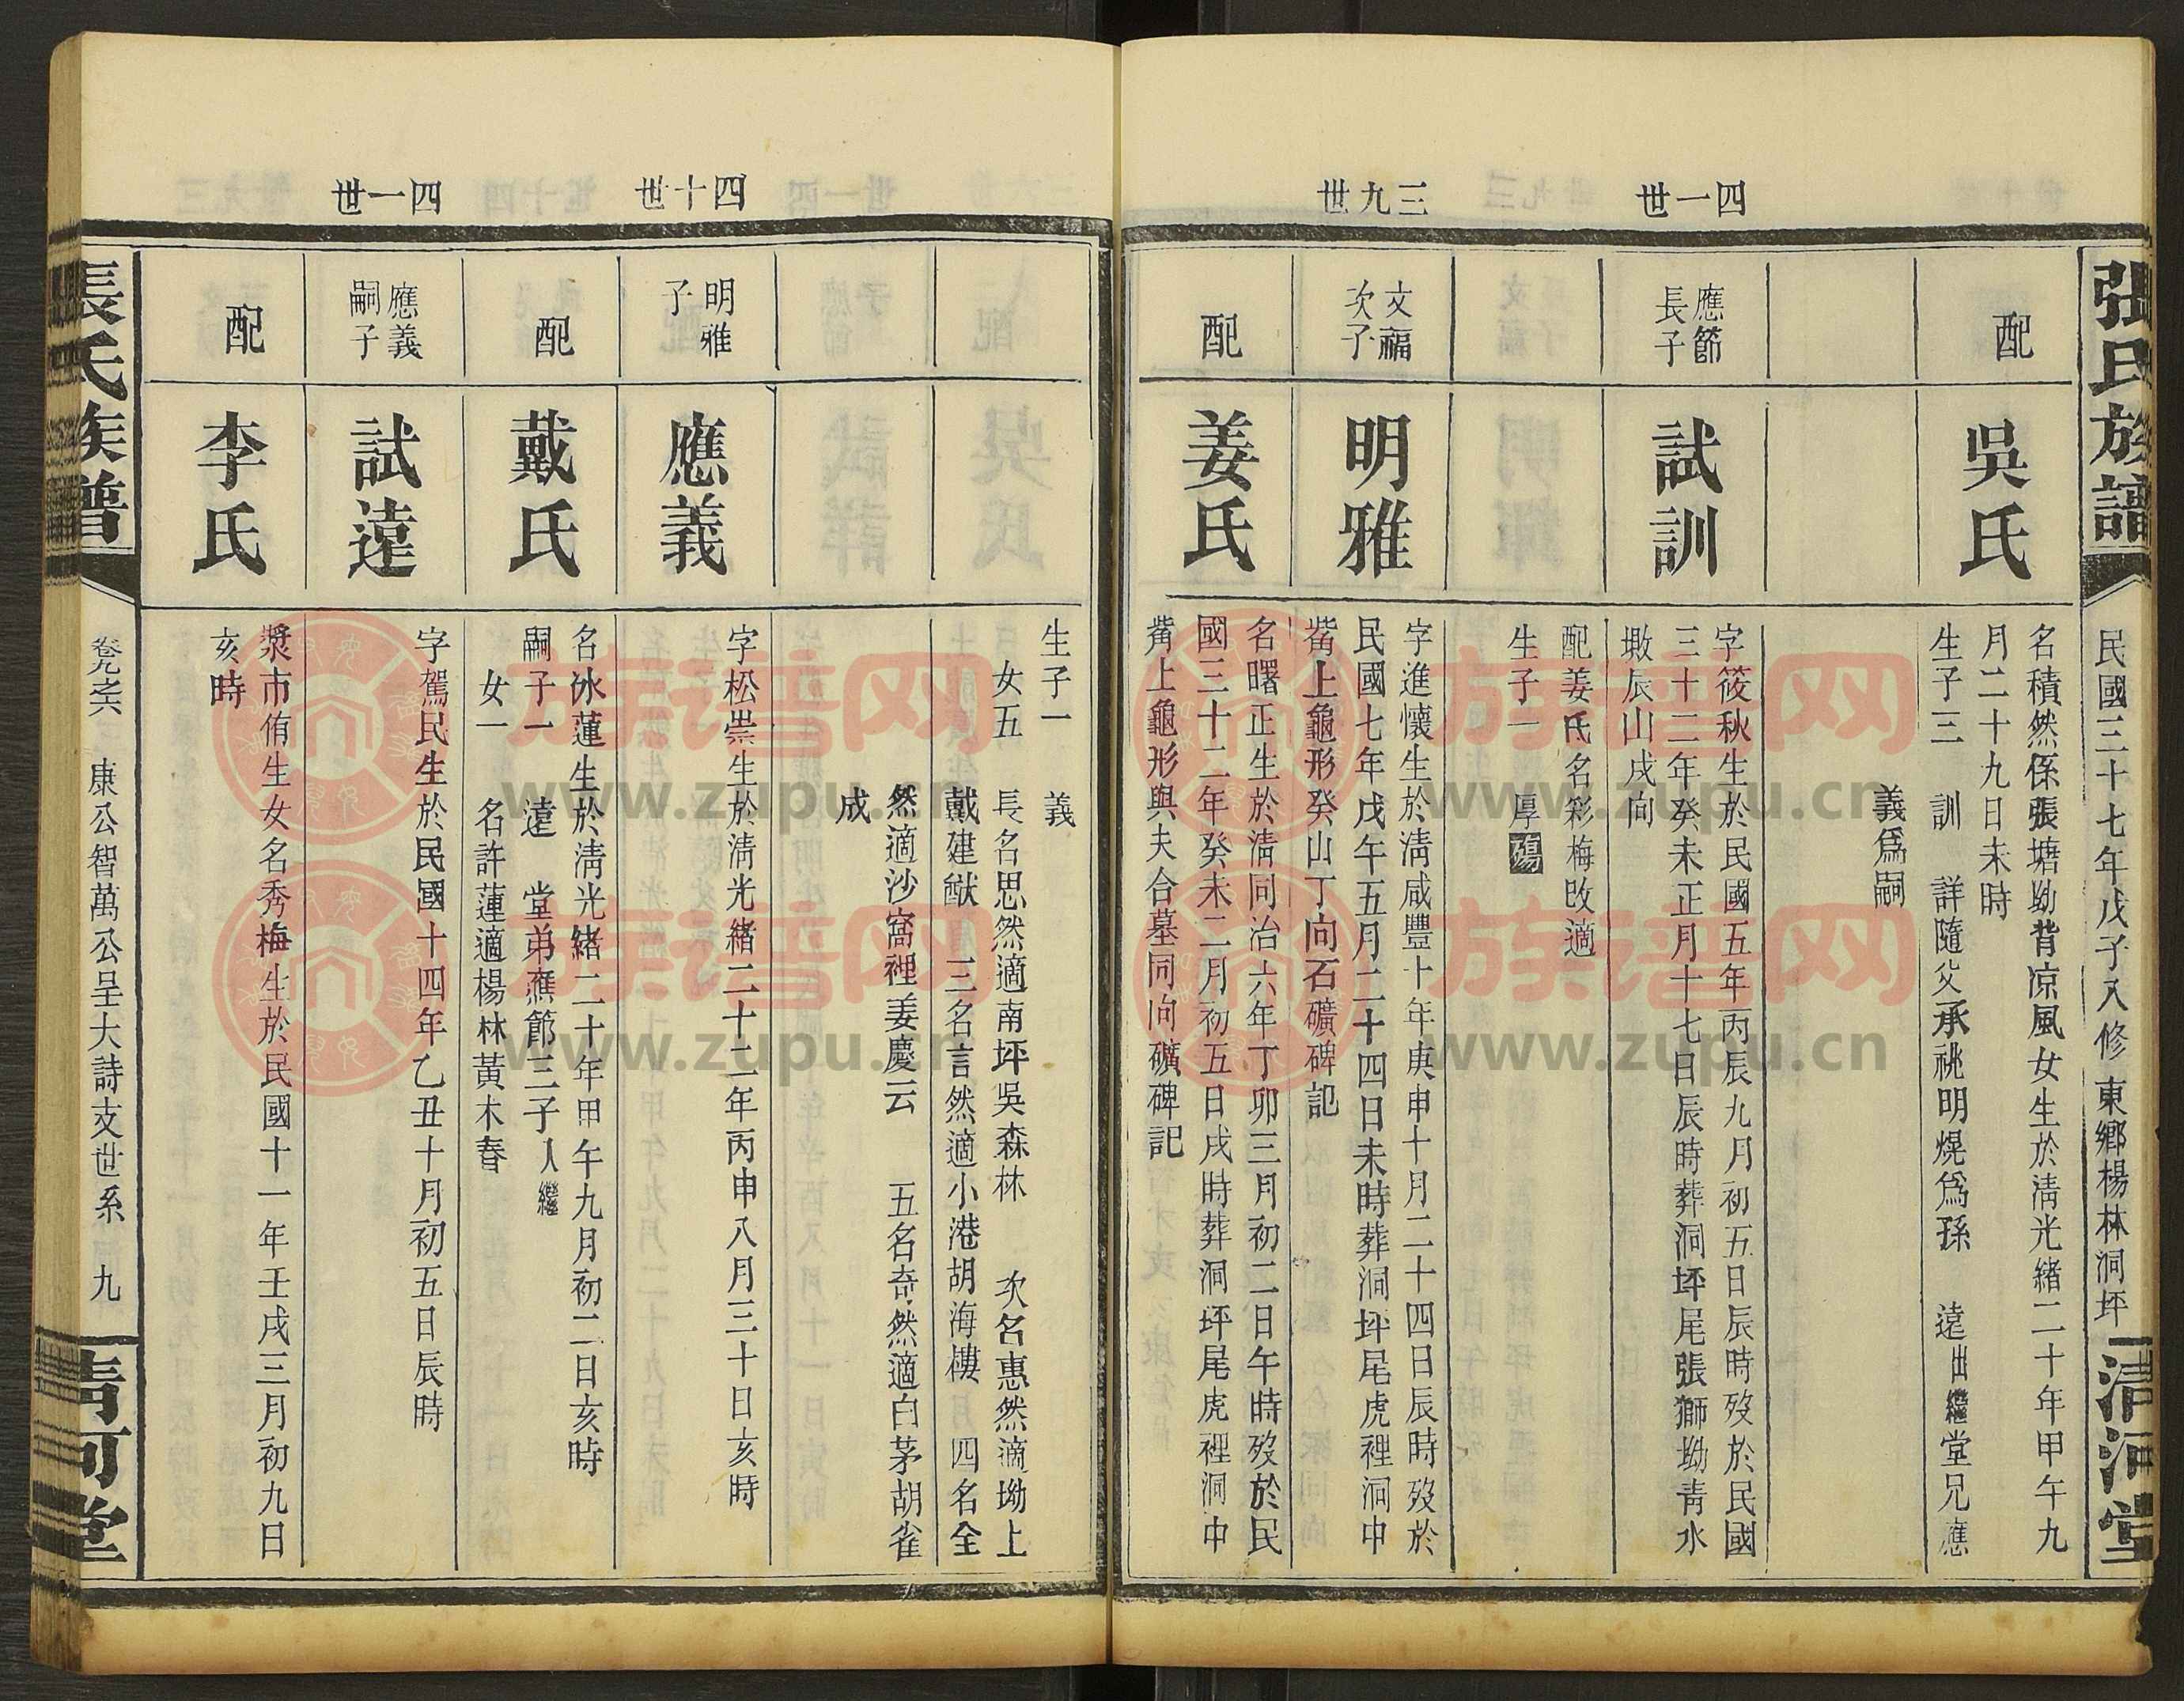 張氏族譜
民國三十七年戊子八修
東鄉楊林洞坪
清河堂
配
吳氏
名積然係張塘坳背凉風女生於清光緒二十年甲午九
月二十九日未時
生子三　訓　詳隨父承祧明熀爲孫　遠出繼堂兄應
義爲嗣
四一世
應節
長子
試訓
字筱秋生於民國五年丙辰九月初五日辰時歿於民國
三十二年癸未正月十七日辰時葬洞坪尾張獅坳青水
墩辰山戌向
配姜氏名彩梅改適
生子一　厚殤
三九世
文福
次子
明雅
字進懷生於清咸豐十年庚申十月二十四日辰時歿於
民國七年戊午五月二十四日未時葬洞坪尾虎裡洞中
觜上龜形癸山丁向石礦碑記
配
姜氏
名曙正生於清同治六年丁卯三月初二日午時歿於民
國三十二年癸未二月初五日戌時葬洞坪尾虎裡洞中
觜上龜形與夫合墓同向礦碑記
生子一　義
女五　長名思然適南坪吳森林　次名惠然適坳上
戴建猷　三名言然適小港胡海樓　四名全
然適沙窩裡姜慶云　五名奇然適白茅胡雀
成
四十世
明雅
子
應義
字松崇生於清光緒二十二年丙申八月三十日亥時
配
戴氏
名冰蓮生於清光緒二十年甲午九月初二日亥時
嗣子一　遠　堂弟應節三子入繼
女一　名許蓮適楊林黃木春
四一世
應義
嗣子
試遠
字駕民生於民國十四年乙丑十月初五日辰時
配
李氏
漿市侑生女名秀梅生於民國十一年壬戌三月初九日
亥時
張氏族譜
卷九之六
康公智萬公呈大詩支世系
九
清河堂
族谱网
www.zupu.cn
族谱网
www.zupu.cn
族谱网
www.zupu.cn
族谱网
www.zupu.cn